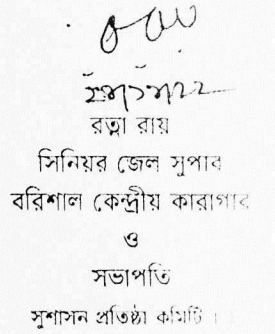 রত্না রায়
সিনিয়র জেল সুপার
বরিশাল কেন্দ্রীয় কারাগার
ও
সভাপতি
সুশাসন প্রতিষ্ঠা কমিটি ।